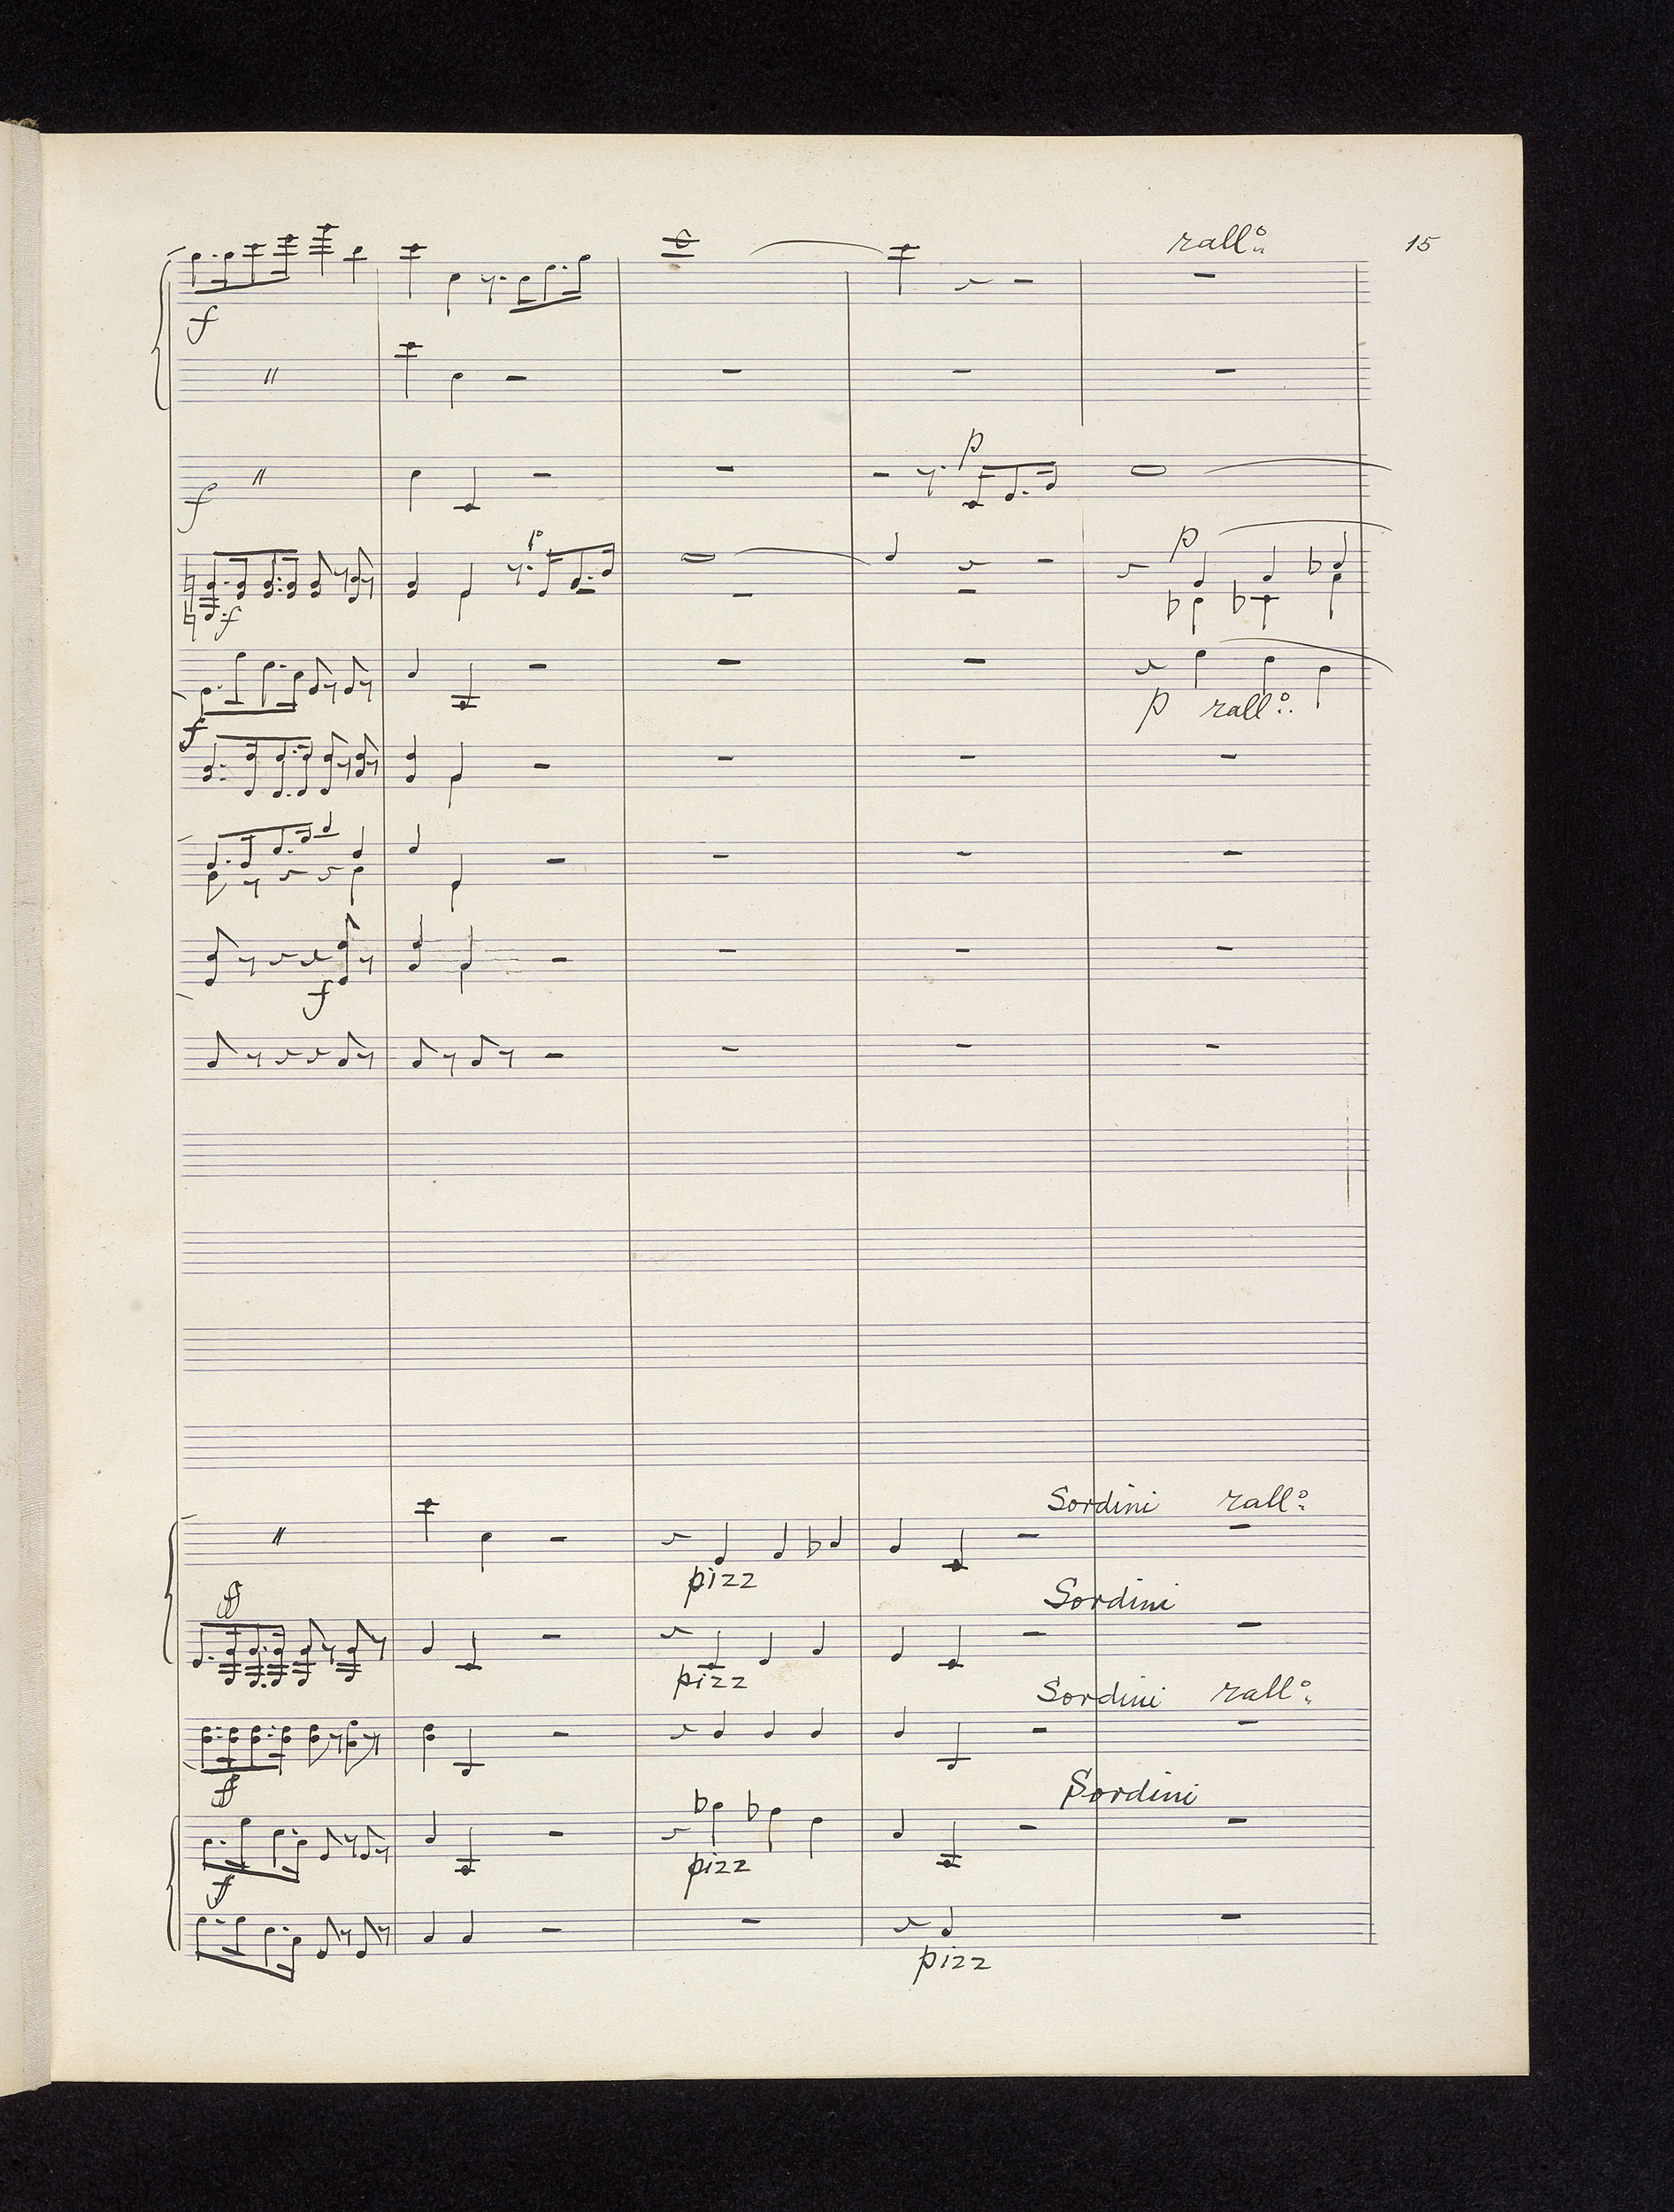 rallo 15
f
p
f
p p
f
p rallo
f
f
Sordini rallo
pizz
ff Sordini
pizz
Sordini rallo
ff
Sordini
pizz
f
pizz